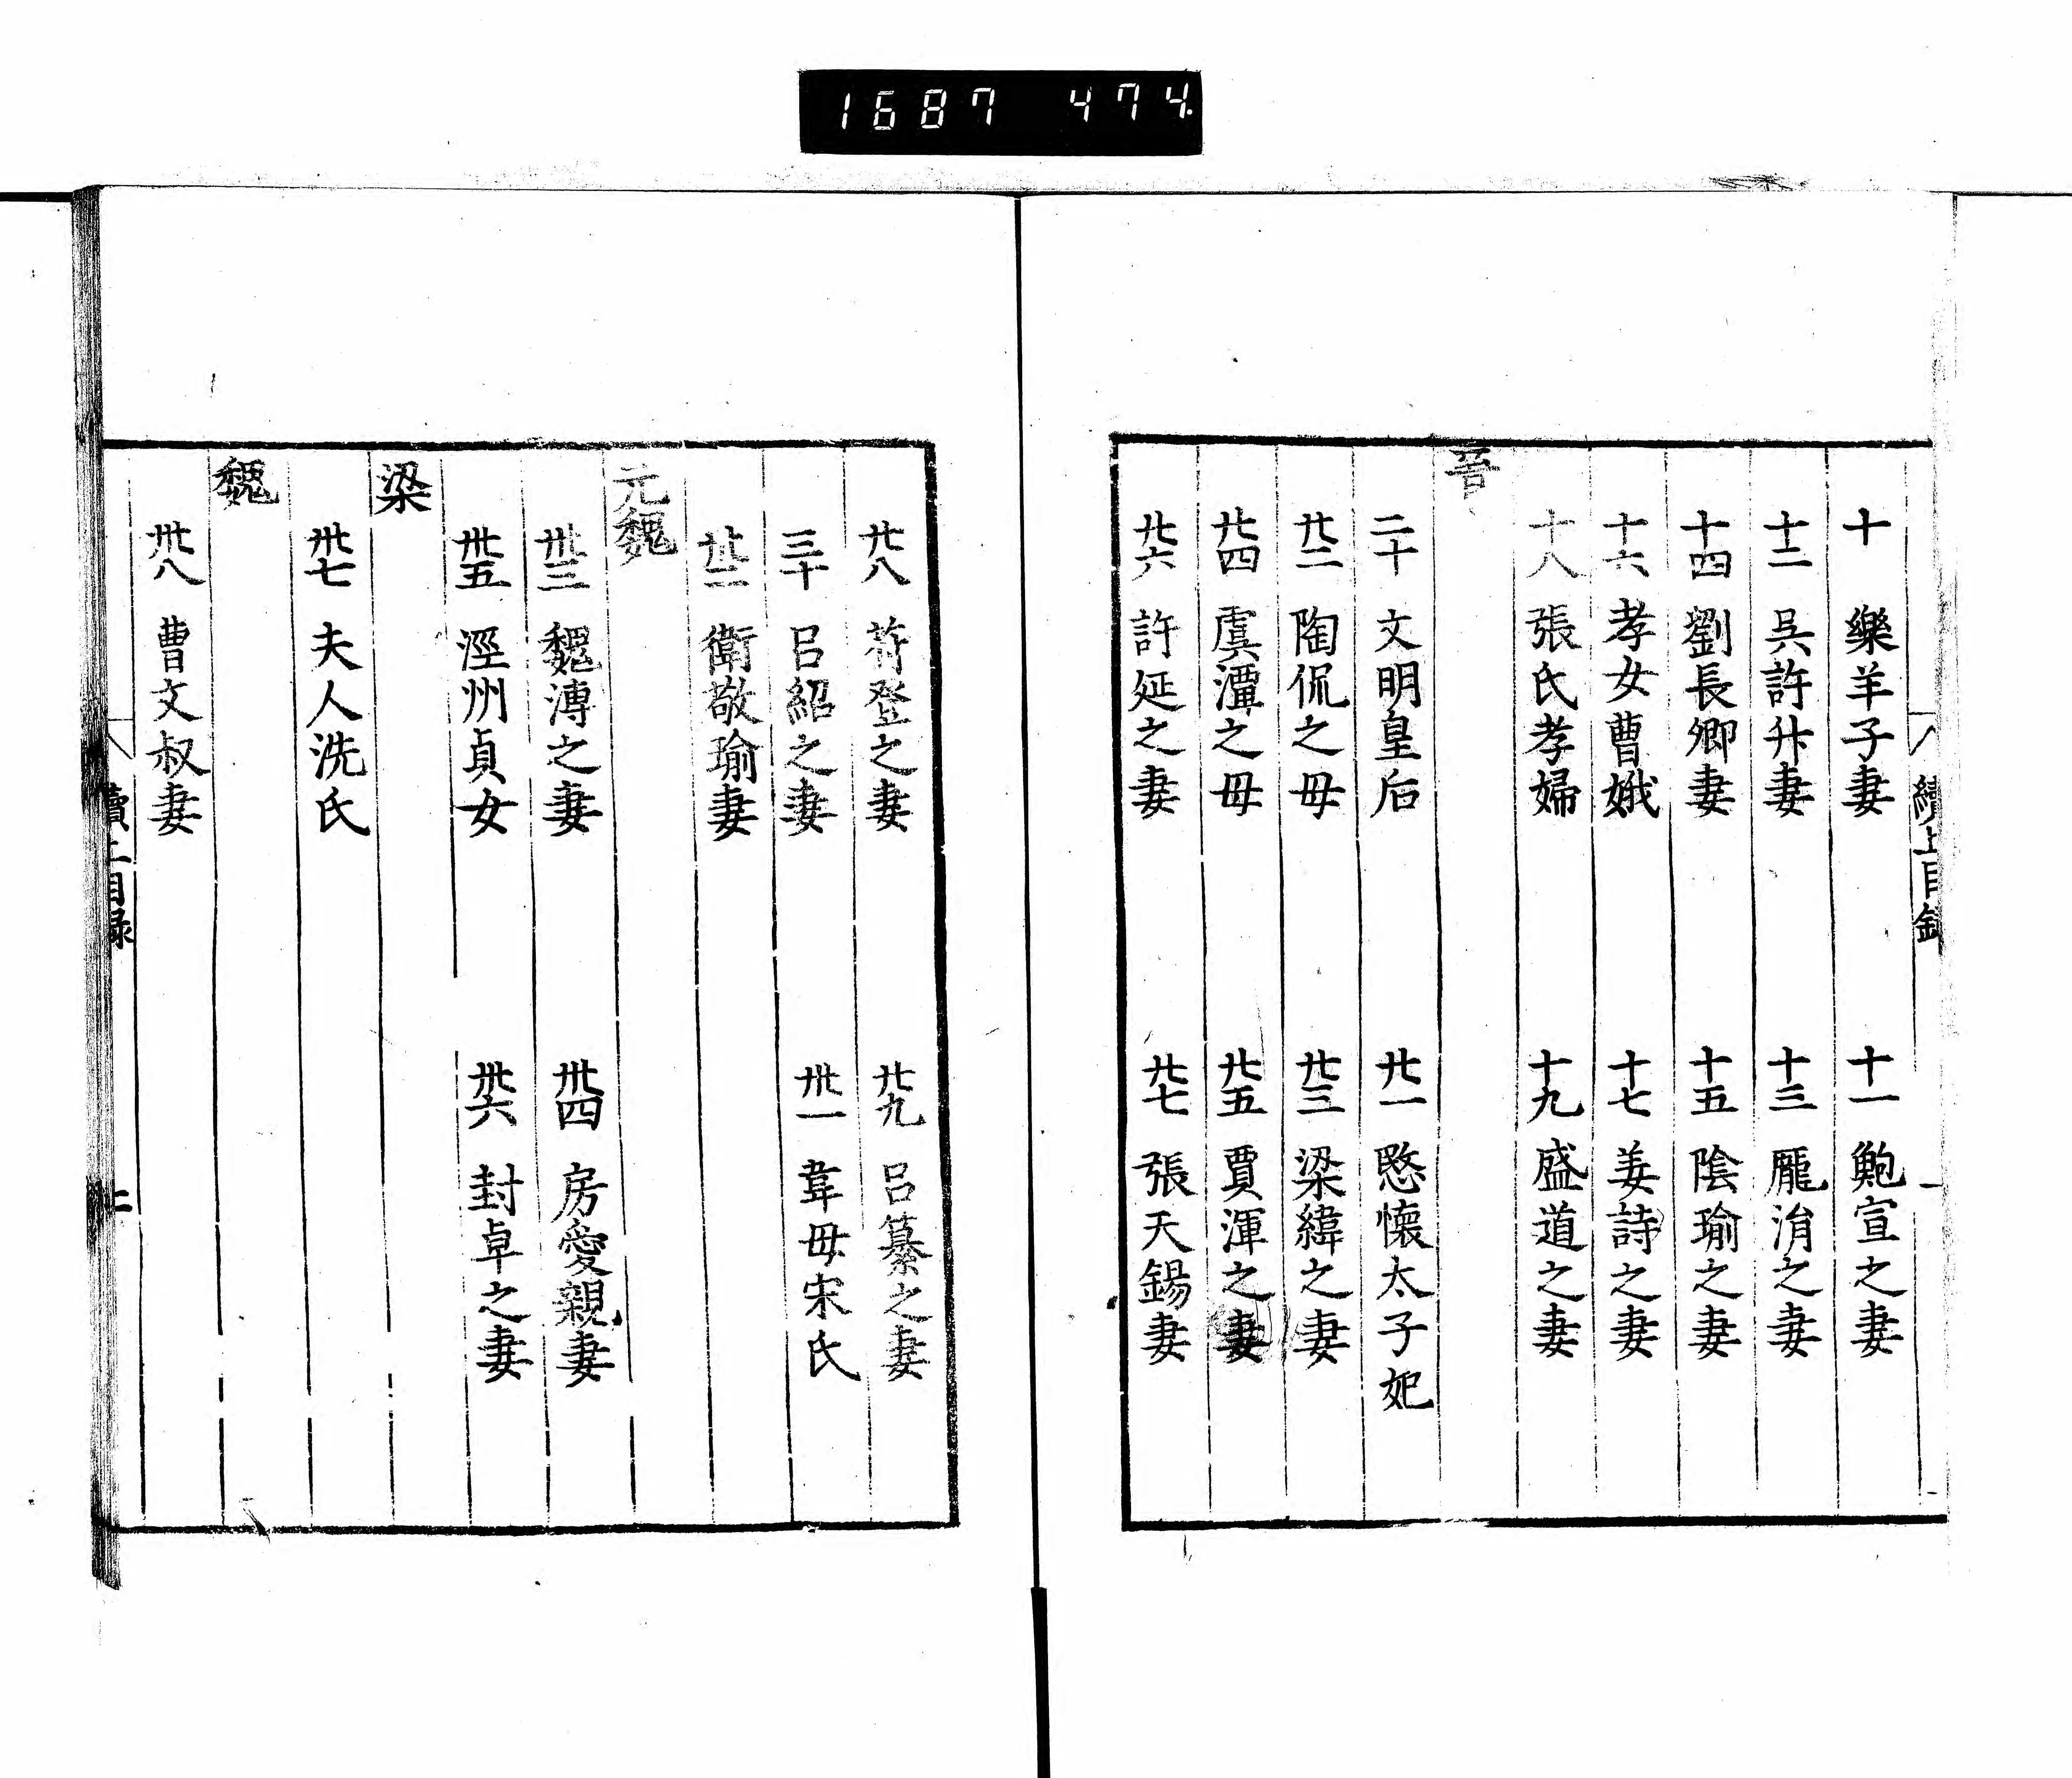 1687 474
十 樂羊子妻 十一 鮑宣之妻
十二 呉許升妻 十三 龎淯之妻
十四 劉長卿妻 十五 陰瑜之妻
十六 孝女曹娥 十七 姜詩之妻
十八 張氏孝婦 十九 盛道之妻
晉
二十 文明皇后 廿一 愍懷太子妃
廿二 陶侃之毋 廿三 梁緯之妻
廿四 虞潭之毋 廿五 賈渾之妻
廿六 許延之妻 廿七 張天錫妻
廿八 苻登之妻 廿九 吕纂之妻
三十 吕紹之妻 卅一 韋毋宋氏
卅二 衛敬瑜妻
元魏
卅三 魏溥之妻 卅四 房愛親妻
卅五 涇州貞女 卅六 封卓之妻
梁
卅七 夫人洗氏
魏
卅八 曹文叔妻
續上目録